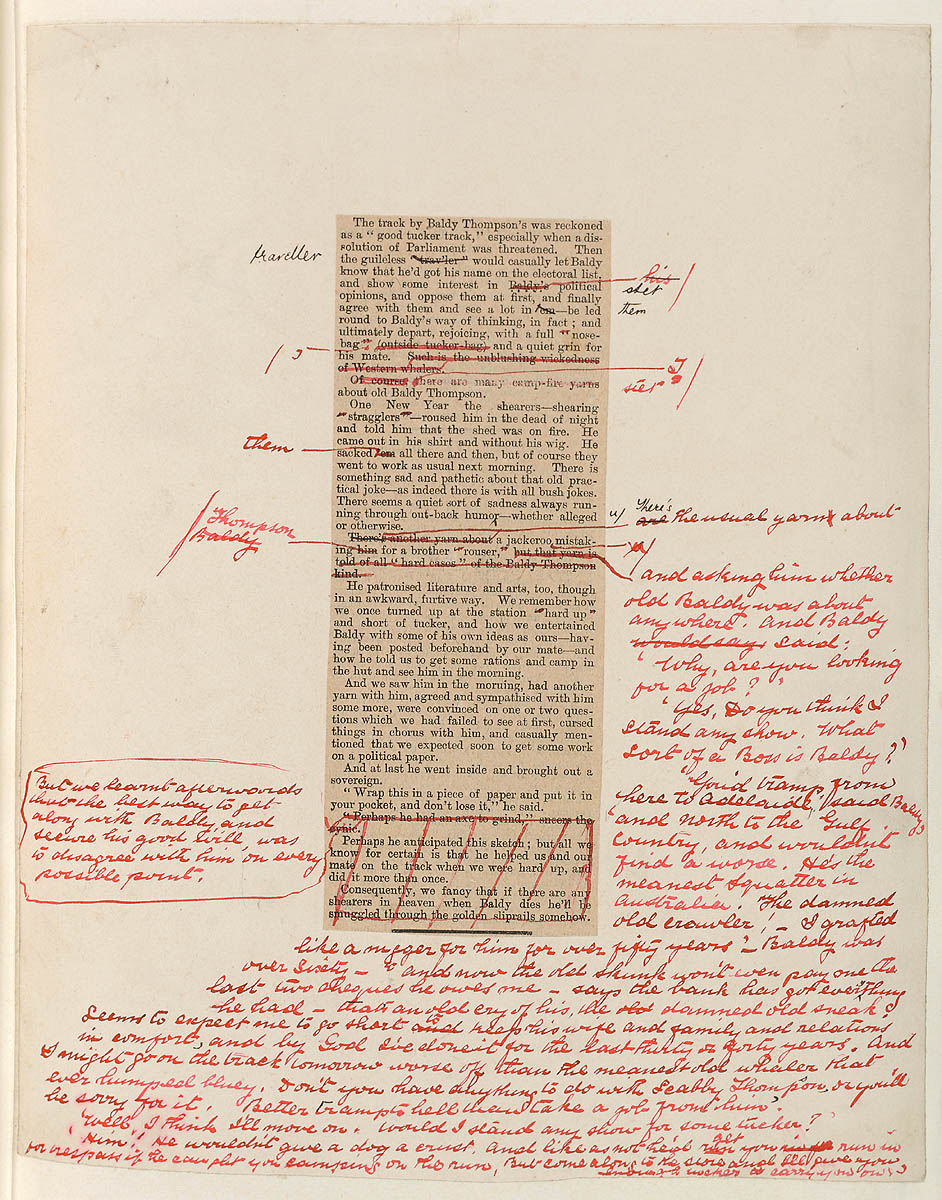 The track by Baldy Thompson's was reckoned
as a "good tucker track," especially when a dis-
solution of Parliament was threatened. Then
the guileless "trav'ler" would casually let Baldy
know that he'd got his name on the electoral list,
and show some interest in Baldy's political
opinions, and oppose them at first, and finally
agree with them and see a lot in 'em—be led
round to Baldy's way of thinking, in fact; and
ultimately depart, rejoicing, with a full "nose-
bag" (outside tucker-bag) and a quiet grin for
his mate. Such is the unblushing wickedness
of Western whalers.
Of course there are many camp-fire yarns
about old Baldy Thompson.
One New Year the shearers—shearing
"stragglers"—roused him in the dead of night
and told him that the shed was on fire. He
came out in his shirt and without his wig. He
sacked 'em all there and then, but of course they
went to work as usual next morning. There is
something sad and pathetic about that old prac-
tical joke—as indeed there is with all bush jokes.
There seems a quiet sort of sadness always run-
ning through out-back humor—whether alleged
or otherwise.
There's another yarn about a jackeroo mistak-
ing him for a brother "rouser," but that yarn is
told of all "hard cases" of the Baldy Thompson
kind.
He patronised literature and arts, too, though
in an awkward, furtive way. We remember how
we once turned up at the station "hard up"
and short of tucker, and how we entertained
Baldy with some of his own ideas as ours—hav-
ing been posted beforehand by our mate—and
how he told us to get some rations and camp in
the hut and see him in the morning.
And we saw him in the morning, had another
yarn with him, agreed and sympathised with him
some more, were convinced on one or two ques-
tions which we had failed to see at first, cursed
things in chorus with him, and casually men-
tioned that we expected soon to get some work
on a political paper.
And at last he went inside and brought out a
sovereign.
"Wrap this in a piece of paper and put it in
your pocket, and don't lose it," he said.
"Perhaps he had an axe to grind," sneers the
cynic.
Perhaps he anticipated this sketch; but all we
know for certain is that he helped us and our
mate on the track when we were hard up, and
did it more than once.
Consequently, we fancy that if there are any
shearers in heaven when Baldy dies he'll be
smuggled through the golden sliprails somehow.
traveller
his
stet
them
T
stet
them
Thompson
Baldy
u/
There's
are the usual yarns about
and asking him whether
old Baldy was about
anywhere. And Baldy
would say said:
'Why, are you looking
for a job?'
'Yes, Do you think I
stand any show. What
sort of a Boss is Baldy?'
'You'd tramp from
here to Adelaide,' said Baldy,
'and north to the Gulf
Country, and wouldn't
find a worse. He's the
meanest squatter in
Australia. The damned
old crawler! – I grafted
like a nigger for him for over fifty years' – Baldy was
over sixty – 'and now the old skunk won't even pay me the
last two cheques he owes me – says the bank has got everything
he had – that's an old cry of his, the old damned old sneak!
Seems to expect me to go short and to keep his wife and family and relations
in comfort, and by God I've done it for the last thirty or forty years. And
I might go on the track tomorrow worse off than the meanest old whaler that
ever humped bluey. Don't you have anything to do with Scabby Thompson, or you'll
be sorry for it. Better tramp to hell than take a job from him'.
'Well, I think I'll move on. Would I stand any show for some tucker?'
'Him! He wouldn't give a dog a crust. And like as not he'd get you run in
for trespass if he caught you camping on the run, But come along to the store and I'll give you
enough tucker to carry you on.'
But we learnt afterwards
that the best way to get
along with Baldy and
secure his good will, was
to disagree with him on every
possible point.